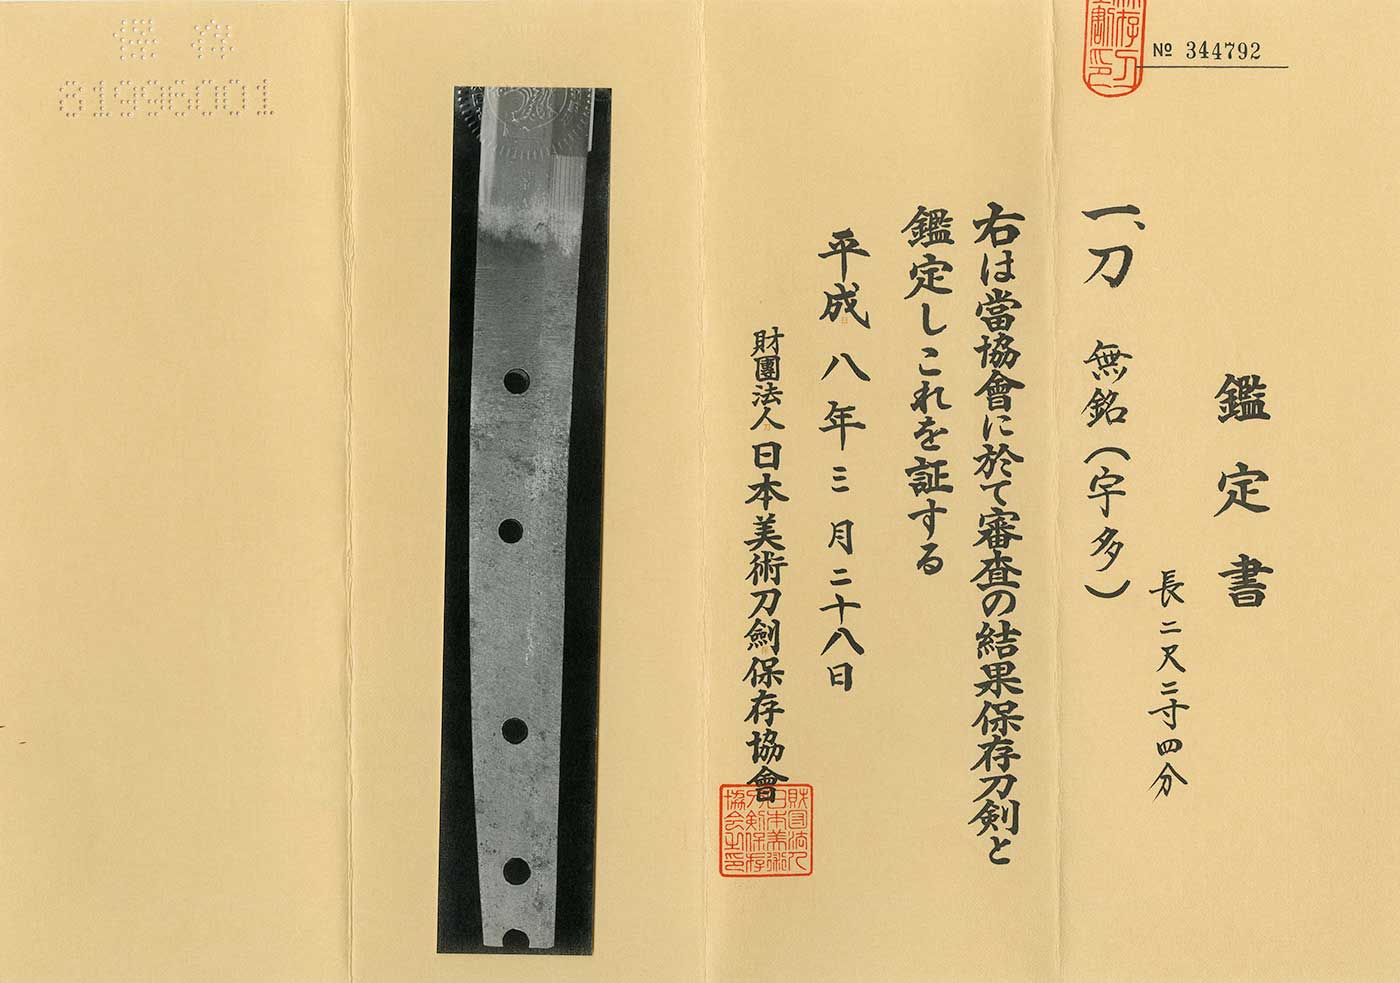 № 344792
鑑定書
一、刀 無銘(宇多)
長二尺二寸四分
右は當協會に於て審査の結果保存刀剣と
鑑定しこれを証する
平成八年三月二十八日
財團法人日本美術刀劍保存協會
保存
81996001